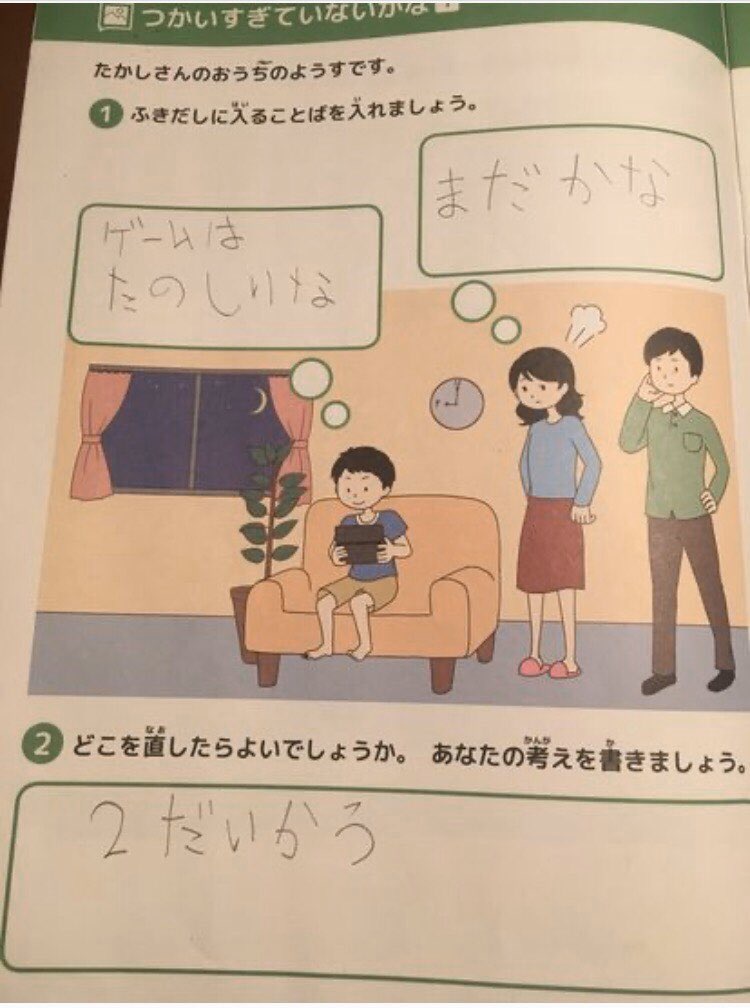 つかいすぎていないかな
たかしさんのおうちのようすです。
1 ふきだしに入ることばを入れましょう。
まだかな
ゲームは
たのしいな
2 どこを直したらよいでしょうか。 あなたの考えを書きましょう。
2だいかろ